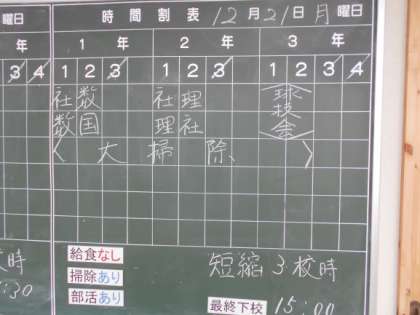 曜日 時間割表 12月21日月曜日
年 1年 2年 3年
3 4 1 2 3 1 2 3 1 2 3 4
社 数 社 理 球技会
数 国 理 社
〈 大 掃 除 〉
給食なし
校時 掃除あり 短縮 3校時
:30 部活あり
最終下校 15:00